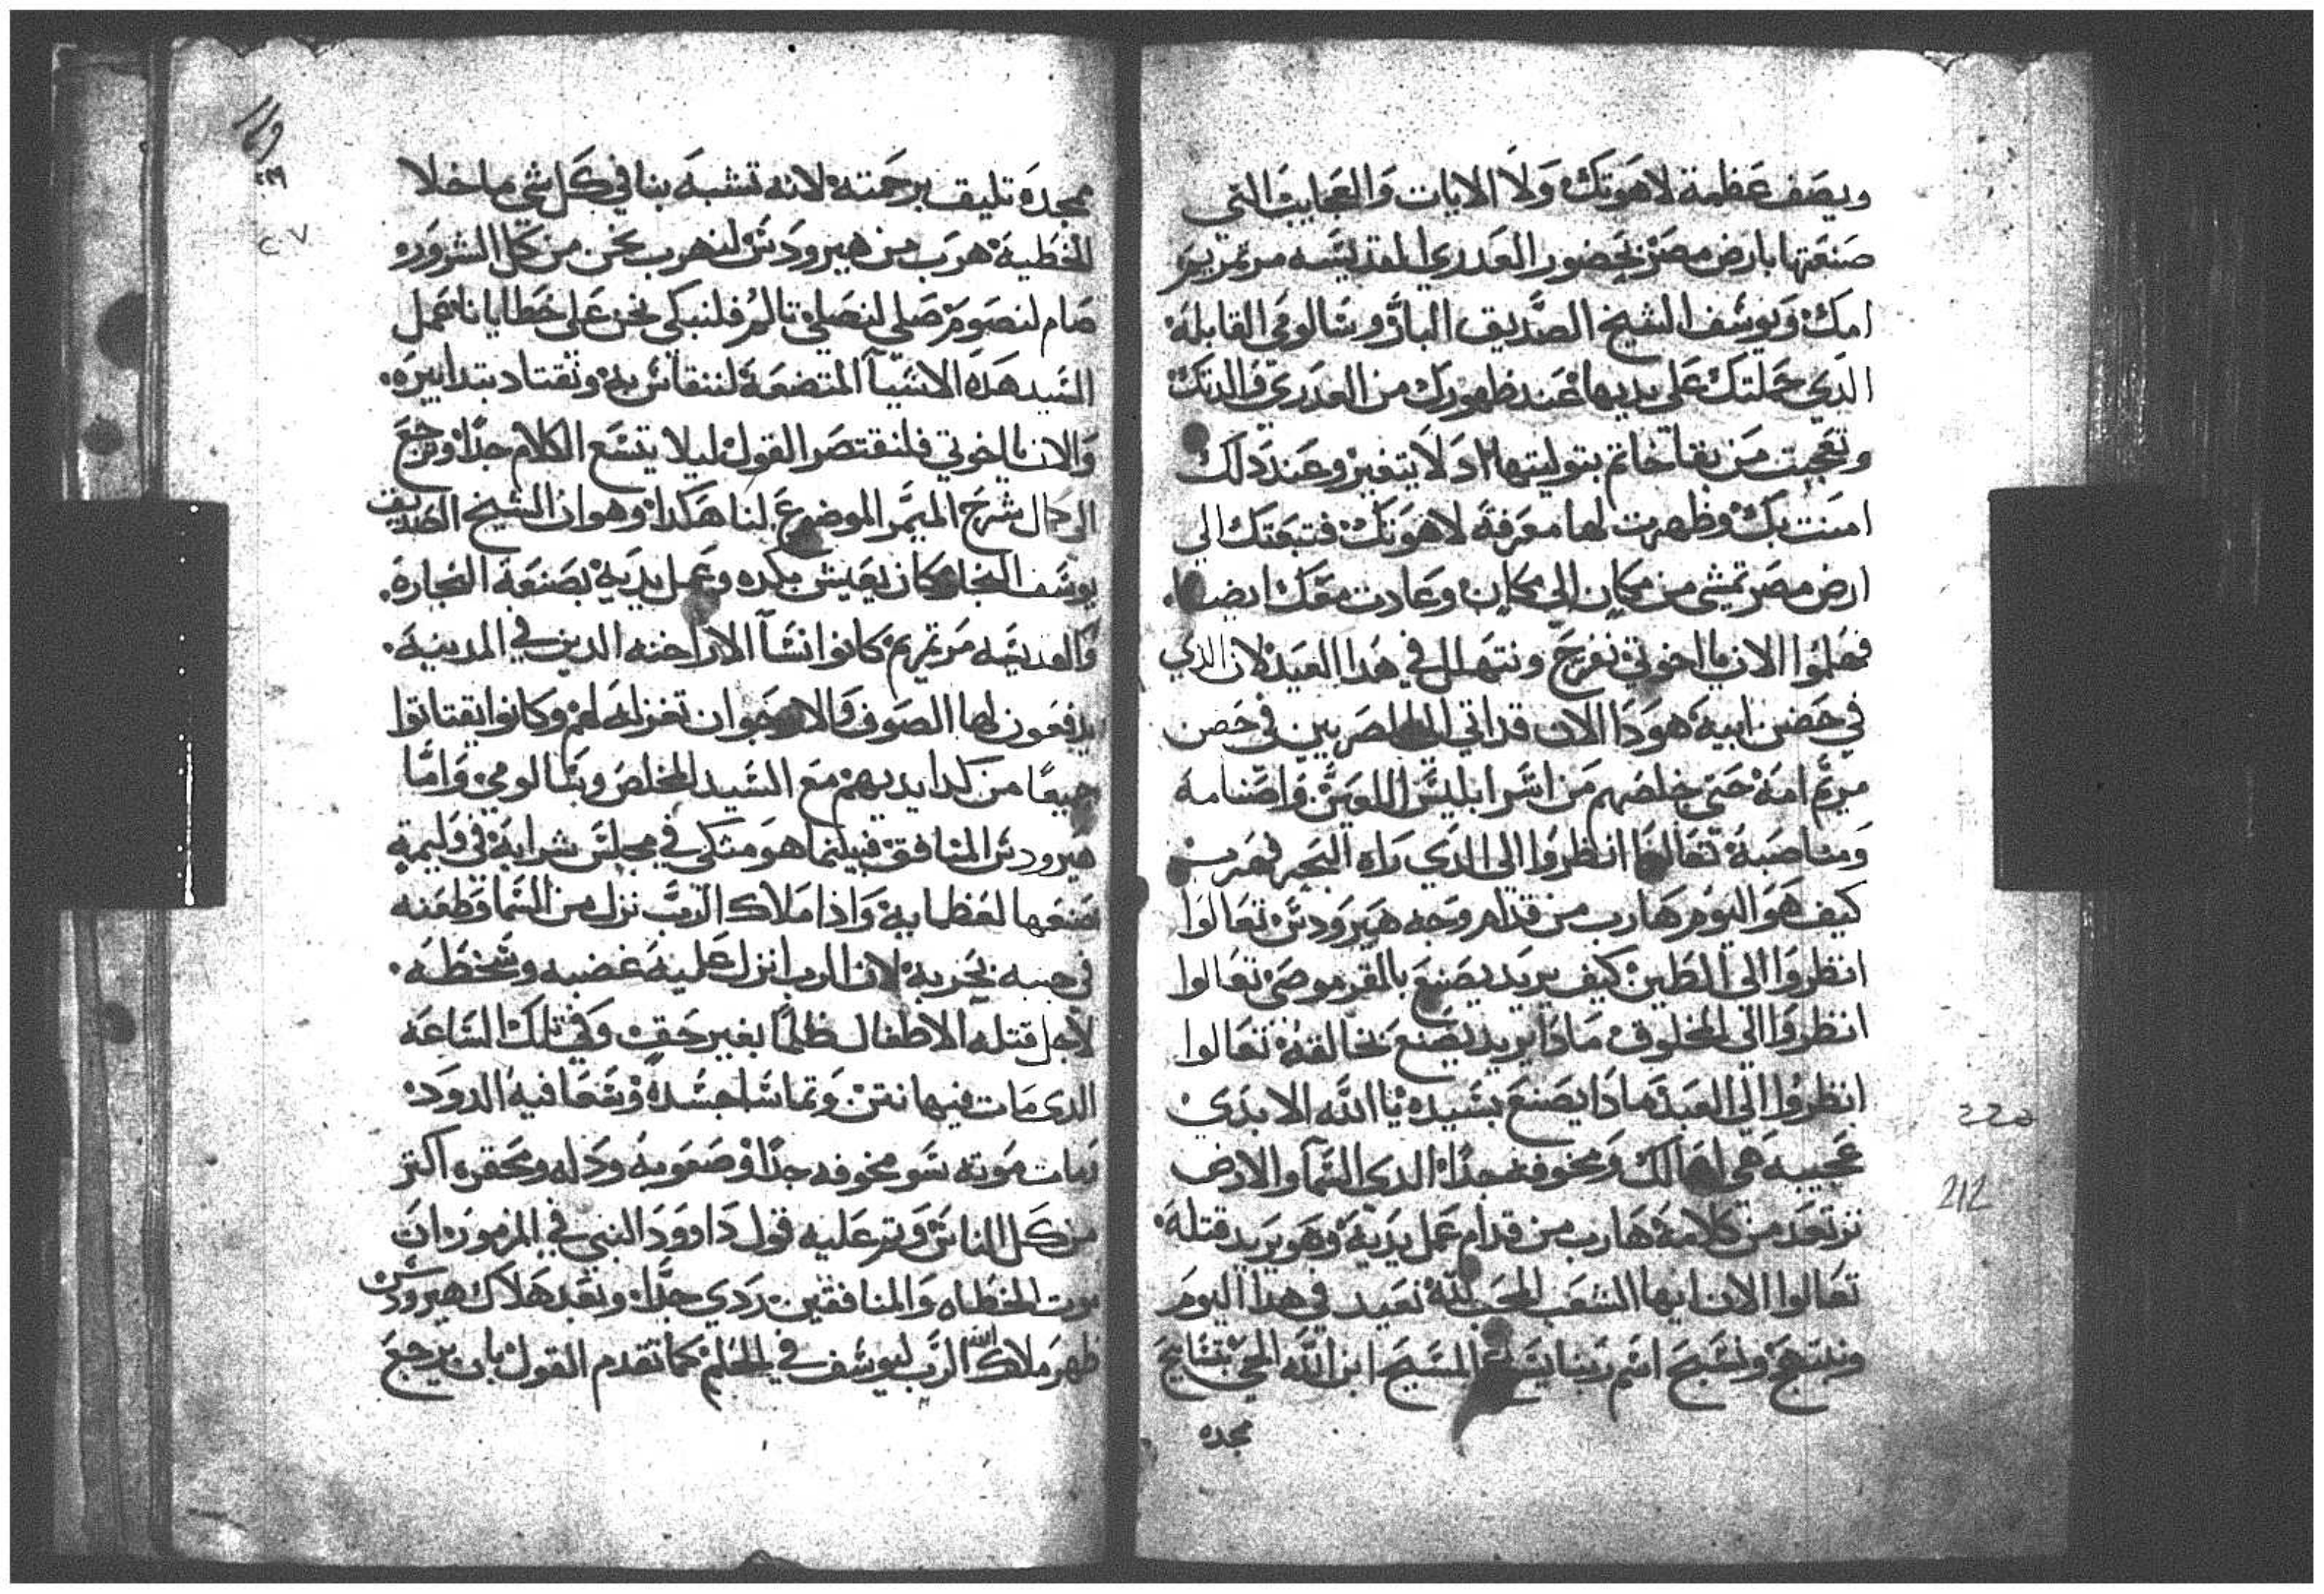 ويصف عظمة لاهوتك ولا الايات والعجايب التي
صنعتها بارض مصر بحضور العدري المقديسه مرتمريم
امك ويوسف الشيخ الصديق البار وسالومي القابله
الدي حملتك علي يديها عند ظهورك من العدري والدتك
وتعجبت من بقا خاتم بتوليتها اد لا يتغير وعند دلك
امنت بك وظهرت لها معرفة لاهوتك فتبعتك الي
ارض مصر تمشي من مكان الي مكان وعادت معك ايضا
فهلموا الان يا اخوتي نفرح ونتهلل في هدا العيد لان الدي
في حضن ابيه هودا الان قد اتي الي المصريين في حصن
مريم امه حتي يخلصهم من اسر ابليس اللعين واصنامه
ومناصبة تعالوا انظروا الي الدي راه البحر فهرب
كيف هو اليوم هارب من قدام وجه هيرودس تعالوا
انظروا الي الطين كيف يريد يصنع بالفرموصي تعالوا
انظروا الي المخلوق مادا يريد يصنع بخالقه تعالوا
انظروا الي العبد مادا يصنع بسيده يا الله الابدي
عجيبه هي افعالك ومخوفه جدا الدي السما والارض
ترتعد من كلامه هارب من قدام عمل يديه وهو يريد قتله
تعالوا الان ايها الشعب المحب لله نعيد في هدا اليوم
ونبتهج ونسبح اسم ربنا يسوع المسيح ابن الله الحي بتسابيح
مجده
١٤٩
٢٢٩
٢٧
ممجده تليق برحمته لانه تشبه بنا في كل شي ما خلا
الخطيه هرب من هيرودس لنهرب نحن من كل الشرور
صام لنصوم صلي لنصلي تالم فلنبكي نحن علي خطايانا عمل
السيد هده الاشيآ المتضعة لنتقاس به ونقتاد بتدابيره
والان يا اخوتي فلنقتصر القول ليلا يتسع الكلام جدا ونرجع
الي كمال شرح الميمر الموضوع لنا هكدا وهو ان الشيخ الصديق
يوسف النجار كان يعيش بكده وعمل يديه بصنعة النجاره
والقديسه مرتمريم كانوا نسآ الاراخنه الدين في المدينه
يدفعون لها الصوف والارجوان تغزله لهم وكانوا يقتاتوا
جميعًا من كد ايديهم مع السيد المخلص وسالومي واما
هيرودس المنافق فبينما هو متكي في مجلس شرابه في وليمة
صنعها لعظمايه واذا ملاك الرب نزل من السما وطعنه
في جنبه بحربه لان الرب انزل عليه غضبه وسخطه
لاجل قتله الاطفال ظلمًا بغير حق وفي تلك الساعه
الدي مات فيها نتن وتماشا جسده وسعا فيه الدود
ومات موته سو مخوفه جدًا وصعوبه ودله ومحقره اكتر
من كل الناس وتم عليه قول داوود النبي في المزمور ان
موت الخطاه والمنافقين ردي جدًا وبعد هلاك هيرودس
ظهر ملاك الله الرب ليوسف في الحلم كما تقدم القول بان يرجع
220
212